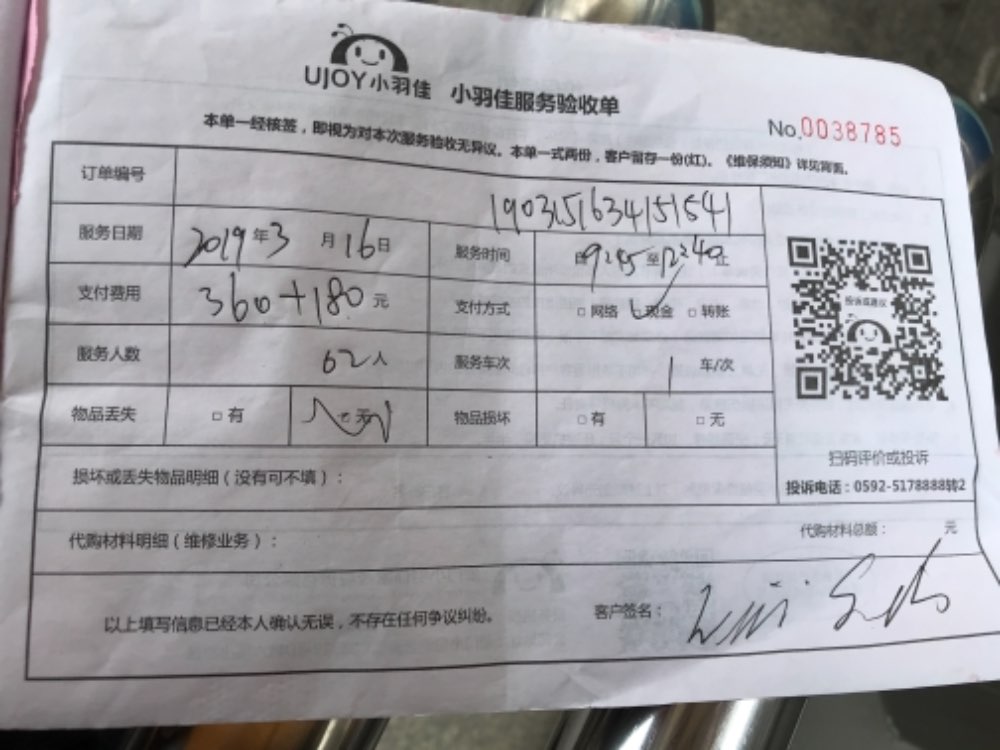 UJOY小羽佳 小羽佳服务验收单
No.0038785
本单一经核签，即视为对本次服务验收无异议。本单一式两份，客户留存一份(红)。《维保须知》详见背面。
订单编号 1903151634151541
服务日期 2019年3月16日 服务时间 至12:40止
支付费用 360+180元 支付方式 □网络 □现金 □转账
服务人数 62人 服务车次 1车/次
物品丢失 □有 □无 物品损坏 □有 □无
投诉或建议
扫码评价或投诉
投诉电话：0592-5178888转2
损坏或丢失物品明细（没有可不填）：
代购材料明细（维修业务）： 代购材料总额： 元
以上填写信息已经本人确认无误，不存在任何争议纠纷。 客户签名：